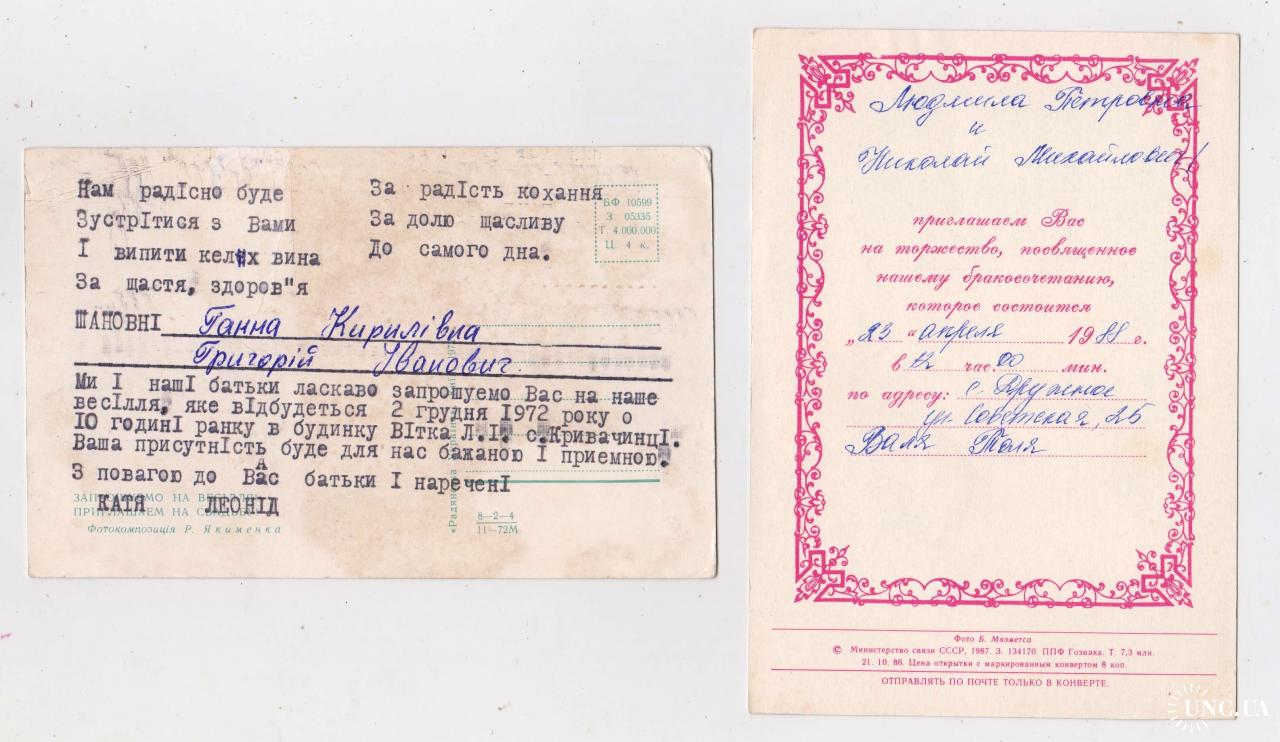 Нам радІсно буде
ЗустрІтися з Вами
І випити келих вина
За щастя, здоров"я
За радІсть кохання
За долю щасливу
До самого дна.
БФ 10599
З. 05335
Т. 4.000.000
Ц. 4 к.
ШАНОВНІ Ганна Кирилівна
Григорій Іванович.
Ми І нашІ батьки ласкаво запрошуемо Вас на наше
весІлля, яке вІдбудеться 2 грудня 1972 року о
ІО годинІ ранку в будинку ВІтка Л.І. с.КривачинцІ.
Ваша присутнІсть буде для нас бажаною І приемною.
З повагою до ВАс батьки І нареченІ
КАТЯ ЛЕОНІД
ЗАПРОШУЄМО НА ВЕСІЛЛЯ
ПРИГЛАШАЕМ НА СВАДЬБУ
Фотокомпозиція Р. Якименка
8—2—4
11—72М
Людмила Петровна
и
Николай Михайлович!
приглашаем Вас
на торжество, посвященное
нашему бракосочетанию,
которое состоится
„23" апреля 1988 г.
в 12 час 00 мин.
по адресу: с. Дружное
ул Советская, 25
Валя Толя
Фото Б. Мязметса
© Министерство связи СССР, 1987. З. 134170. ППФ Гознака. Т. 7,3 млн.
21. 10. 86. Цена открытки с маркированным конвертом 8 коп.
ОТПРАВЛЯТЬ ПО ПОЧТЕ ТОЛЬКО В КОНВЕРТЕ.
UNC.UA